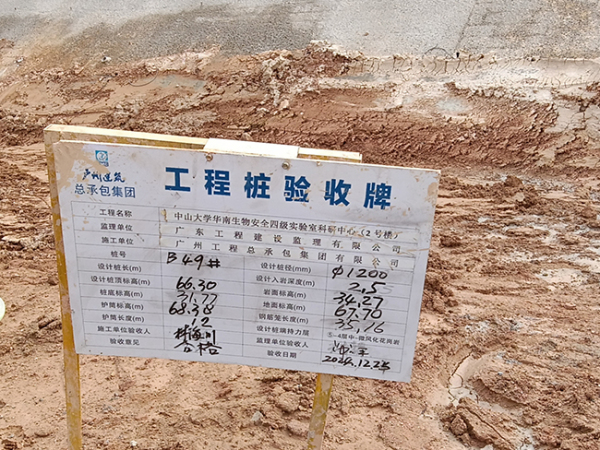 广州建筑
总承包集团
工程桩验收牌
工程名称 中山大学华南生物安全四级实验室科研中心(2号楼)
监理单位 广东工程建设监理有限公司
施工单位 广州工程总承包集团有限公司
桩号 B49# 设计桩径(mm) Φ1200
设计桩长(m) 设计入岩深度(m) 2.5
设计桩顶标高(m) 66.30 岩面标高(m) 34.27
桩底标高(m) 31.77 地面标高(m) 67.70
护筒标高(m) 68.38 钢筋笼长度(m) 35.16
护筒长度(m) 2 设计桩端持力层 中-微风化花岗岩
施工单位验收人 监理单位验收人
验收意见 合格 验收日期 2024.12.25